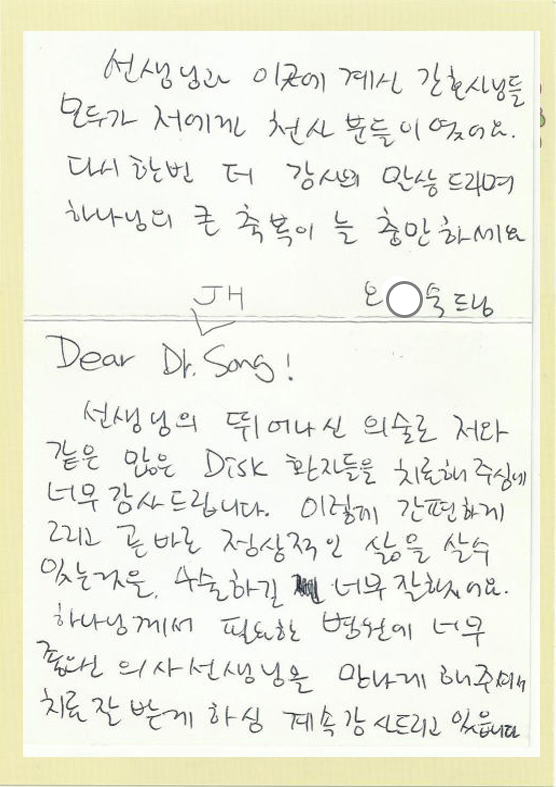 선생님과 이곳에 계신 간호사님들
모두가 저에게 천사 분들이였어요.
다시 한번 더 감사의 말씀 드리며
하나님의 큰 축복이 늘 충만하세요
오 숙 드림
JH
Dear Dr. Song!
선생님의 뛰어나신 의술로 저와
같은 많은 Disk 환자들을 치료해 주심에
너무 감사드립니다. 이렇게 간편하게
그리고 곧바로 정상적인 삶을 살수
있는것을, 수술하길 너무 잘했어요.
하나님께서 필요한 병원에 너무
좋으신 의사선생님을 만나게 해주시며
치료 잘 받게 하심 계속 감사드리고 있습니다